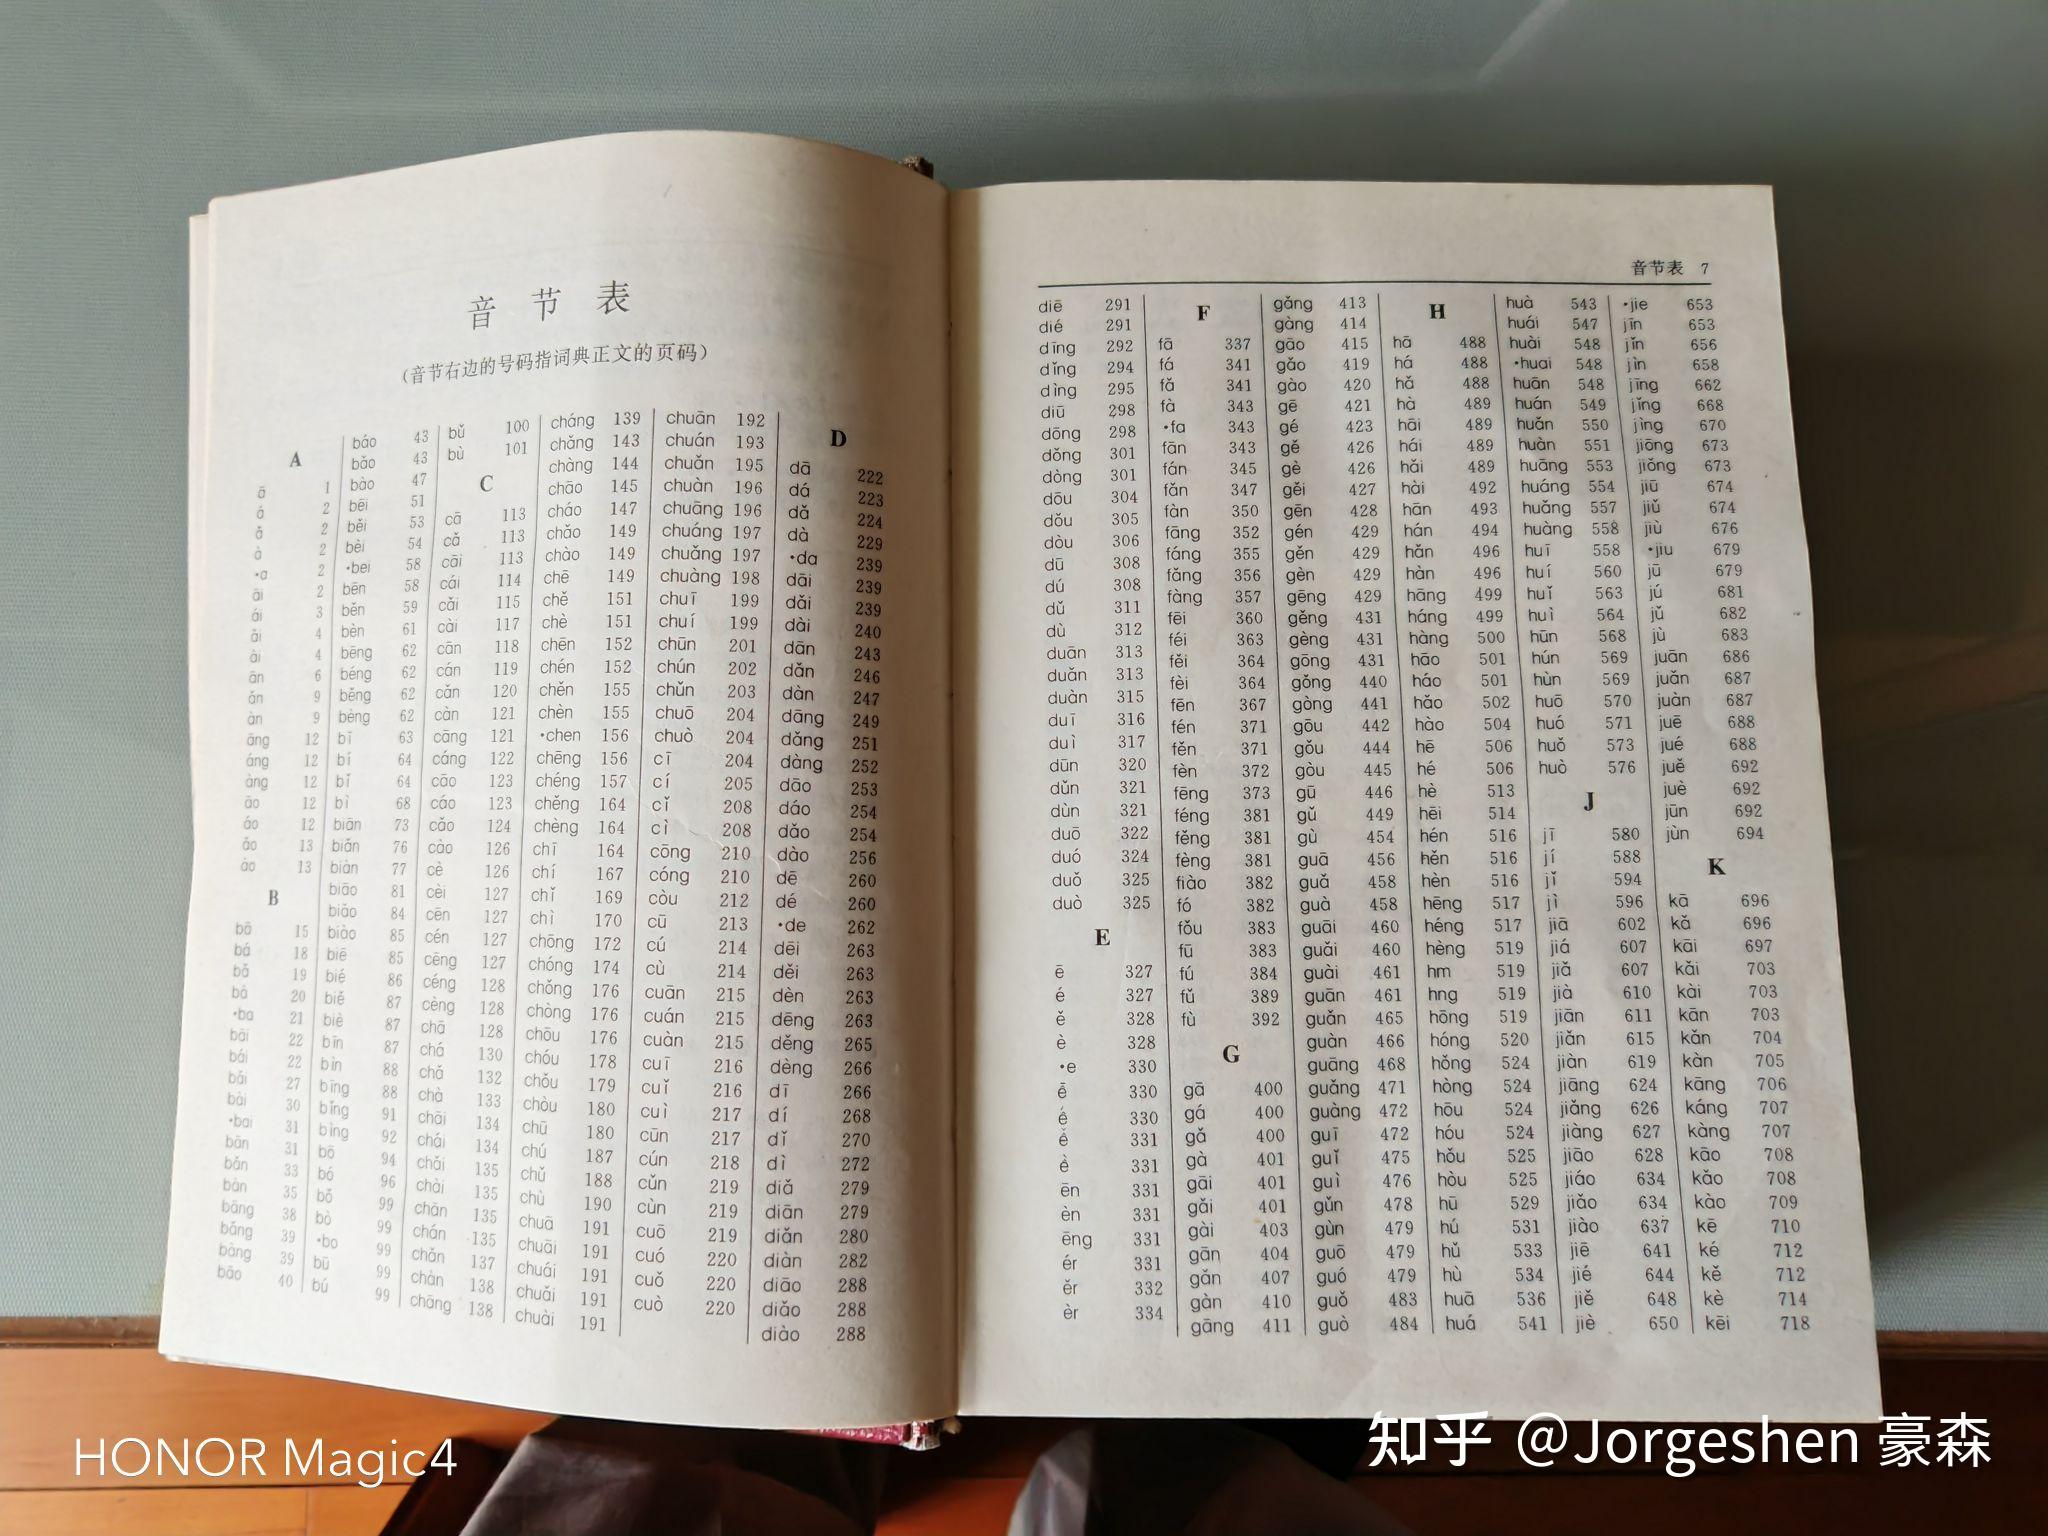 音节表
(音节右边的号码指词典正文的页码)
A
ā 1
á 2
ǎ 2
à 2
·a 2
āi 2
ái 3
ǎi 4
ài 4
ān 6
ǎn 9
àn 9
āng 12
áng 12
àng 12
āo 12
áo 12
ǎo 13
ào 13
B
bā 15
bá 18
bǎ 19
bà 20
·ba 21
bāi 22
bái 22
bǎi 27
bài 30
·bai 31
bān 31
bǎn 33
bàn 35
bāng 38
bǎng 39
bàng 39
bāo 40
báo 43
bǎo 43
bào 47
bēi 51
běi 53
bèi 54
·bei 58
bēn 58
běn 59
bèn 61
bēng 62
béng 62
běng 62
bèng 62
bī 63
bí 64
bǐ 64
bì 68
biān 73
biǎn 76
biàn 77
biāo 81
biǎo 84
biào 85
biē 85
bié 86
biě 87
biè 87
bīn 87
bìn 88
bīng 88
bǐng 91
bìng 92
bō 94
bó 96
bǒ 99
bò 99
·bo 99
bū 99
bú 99
bǔ 100
bù 101
C
cā 113
cǎ 113
cāi 113
cái 114
cǎi 115
cài 117
cān 118
cán 119
cǎn 120
càn 121
cāng 121
cáng 122
cāo 123
cáo 123
cǎo 124
cào 126
cè 126
cèi 127
cēn 127
cén 127
cēng 127
céng 128
cèng 128
chā 128
chá 130
chǎ 132
chà 133
chāi 134
chái 134
chǎi 135
chài 135
chān 135
chán 135
chǎn 137
chàn 138
chāng 138
cháng 139
chǎng 143
chàng 144
chāo 145
cháo 147
chǎo 149
chào 149
chē 149
chě 151
chè 151
chēn 152
chén 152
chěn 155
chèn 155
·chen 156
chēng 156
chéng 157
chěng 164
chèng 164
chī 164
chí 167
chǐ 169
chì 170
chōng 172
chóng 174
chǒng 176
chòng 176
chōu 176
chóu 178
chǒu 179
chòu 180
chū 180
chú 187
chǔ 188
chù 190
chuā 191
chuāi 191
chuái 191
chuǎi 191
chuài 191
chuān 192
chuán 193
chuǎn 195
chuàn 196
chuāng 196
chuáng 197
chuǎng 197
chuàng 198
chuī 199
chuí 199
chūn 201
chún 202
chǔn 203
chuō 204
chuò 204
cī 204
cí 205
cǐ 208
cì 208
cōng 210
cóng 210
còu 212
cū 213
cú 214
cù 214
cuān 215
cuán 215
cuàn 215
cuī 216
cuǐ 216
cuì 217
cūn 217
cún 218
cǔn 219
cùn 219
cuō 219
cuó 220
cuǒ 220
cuò 220
D
dā 222
dá 223
dǎ 224
dà 229
·da 239
dāi 239
dǎi 239
dài 240
dān 243
dǎn 246
dàn 247
dāng 249
dǎng 251
dàng 252
dāo 253
dáo 254
dǎo 254
dào 256
dē 260
dé 260
·de 262
dēi 263
děi 263
dèn 263
dēng 263
děng 265
dèng 266
dī 266
dí 268
dǐ 270
dì 272
diǎ 279
diān 279
diǎn 280
diàn 282
diāo 288
diǎo 288
diào 288
音节表 7
diē 291
dié 291
dīng 292
dǐng 294
dìng 295
diū 298
dōng 298
dǒng 301
dòng 301
dōu 304
dǒu 305
dòu 306
dū 308
dú 308
dǔ 311
dù 312
duān 313
duǎn 313
duàn 315
duī 316
duì 317
dūn 320
dǔn 321
dùn 321
duō 322
duó 324
duǒ 325
duò 325
E
ē 327
é 327
ě 328
è 328
·e 330
ê̄ 330
ế 330
ê̌ 331
ề 331
ēn 331
èn 331
ēng 331
ér 331
ěr 332
èr 334
F
fā 337
fá 341
fǎ 341
fà 343
·fa 343
fān 343
fán 345
fǎn 347
fàn 350
fāng 352
fáng 355
fǎng 356
fàng 357
fēi 360
féi 363
fěi 364
fèi 364
fēn 367
fén 371
fěn 371
fèn 372
fēng 373
féng 381
fěng 381
fèng 381
fiào 382
fó 382
fǒu 383
fū 383
fú 384
fǔ 389
fù 392
G
gā 400
gá 400
gǎ 400
gà 401
gāi 401
gǎi 401
gài 403
gān 404
gǎn 407
gàn 410
gāng 411
gǎng 413
gàng 414
gāo 415
gǎo 419
gào 420
gē 421
gé 423
gě 426
gè 426
gěi 427
gēn 428
gén 429
gěn 429
gèn 429
gēng 429
gěng 431
gèng 431
gōng 431
gǒng 440
gòng 441
gōu 442
gǒu 444
gòu 445
gū 446
gǔ 449
gù 454
guā 456
guǎ 458
guà 458
guāi 460
guǎi 460
guài 461
guān 461
guǎn 465
guàn 466
guāng 468
guǎng 471
guàng 472
guī 472
guǐ 475
guì 476
gǔn 478
gùn 479
guō 479
guó 479
guǒ 483
guò 484
H
hā 488
há 488
hǎ 488
hà 489
hāi 489
hái 489
hǎi 489
hài 492
hān 493
hán 494
hǎn 496
hàn 496
hāng 499
háng 499
hàng 500
hāo 501
háo 501
hǎo 502
hào 504
hē 506
hé 506
hè 513
hēi 514
hén 516
hěn 516
hèn 516
hēng 517
héng 517
hèng 519
hm 519
hng 519
hōng 519
hóng 520
hǒng 524
hòng 524
hōu 524
hóu 524
hǒu 525
hòu 525
hū 529
hú 531
hǔ 533
hù 534
huā 536
huá 541
huà 543
huái 547
huài 548
·huai 548
huān 548
huán 549
huǎn 550
huàn 551
huāng 553
huáng 554
huǎng 557
huàng 558
huī 558
huí 560
huǐ 563
huì 564
hūn 568
hún 569
hùn 569
huō 570
huó 571
huǒ 573
huò 576
J
jī 580
jí 588
jǐ 594
jì 596
jiā 602
jiá 607
jiǎ 607
jià 610
jiān 611
jiǎn 615
jiàn 619
jiāng 624
jiǎng 626
jiàng 627
jiāo 628
jiáo 634
jiǎo 634
jiào 637
jiē 641
jié 644
jiě 648
jiè 650
·jie 653
jīn 653
jǐn 656
jìn 658
jīng 662
jǐng 668
jìng 670
jiōng 673
jiǒng 673
jiū 674
jiǔ 674
jiù 676
·jiu 679
jū 679
jú 681
jǔ 682
jù 683
juān 686
juǎn 687
juàn 687
juē 688
jué 688
juě 692
juè 692
jūn 692
jùn 694
K
kā 696
kǎ 696
kāi 697
kǎi 703
kài 703
kān 703
kǎn 704
kàn 705
kāng 706
káng 707
kàng 707
kāo 708
kǎo 708
kào 709
kē 710
ké 712
kě 712
kè 714
kēi 718
HONOR Magic4
知乎 @Jorgeshen 豪森